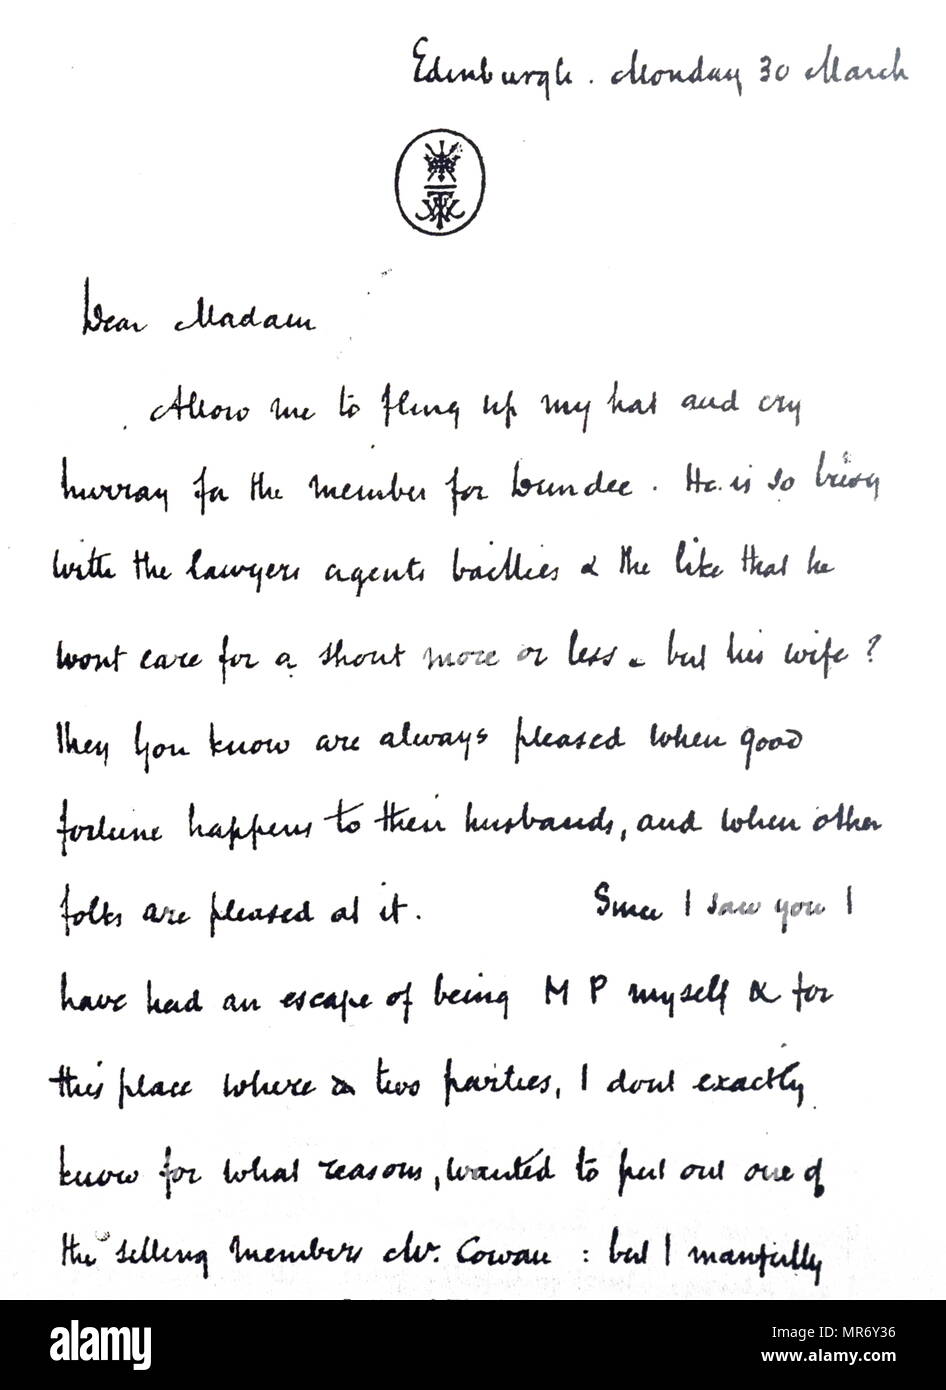 Edinburgh. Monday 30 March
Dear Madam
Allow me to fling up my hat and cry
hurray for the member for Dundee. He is so busy
with the lawyers agents baillies & the like that he
wont care for a shout more or less - but his wife?
they you know are always pleased when good
fortune happens to their husbands, and when other
folks are pleased at it. Since I saw you I
have had an escape of being M P myself & for
this place where two parties, I dont exactly
know for what reasons, wanted to put out one of
the sitting members Mr. Cowan : but I manfully
a
alamy
alamy stock photo
MR6Y36
www.alamy.com